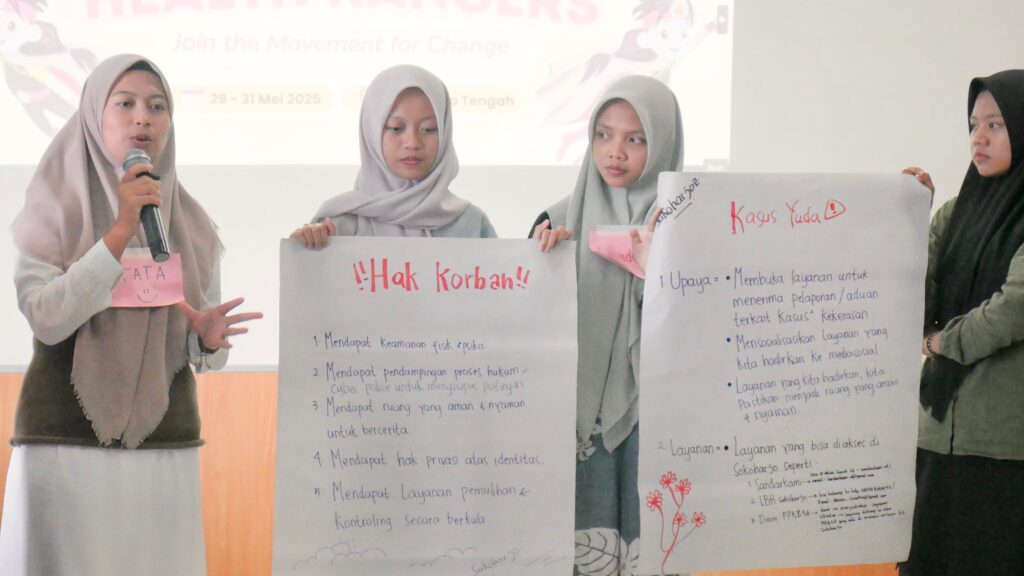 HEALTH RANGERS
Join the Movement for Change
29 - 31 Mei 2025
Tengah
TATA
!!Hak Korban!!
1. Mendapat keamanan fisik & psikis
2. Mendapat pendampingan proses hukum &
cyber police untuk menghapus postingan
3. Mendapat ruang yang aman & nyaman
untuk bercerita
4. Mendapat hak privasi atas identitas.
5. Mendapat Layanan pemulihan &
Kontroling secara berkala
Sukoharjo
Sukoharjoz
Kasus Yuda !
1. Upaya = • Membuka layanan untuk
menerima pelaporan/aduan
terkait kasus² kekerasan
• Mensosialisasikan Layanan yang
kita hadirkan ke media sosial
• Layanan yang kita hadirkan, kita
Pastikan menjadi ruang yang aman
& nyaman.
2. Layanan = • Layanan yang bisa diakses di
Sokoharjo seperti :
1. Sandarkami →
2. LBH Sokoharjo →
3. Dinas PPKBP3A →